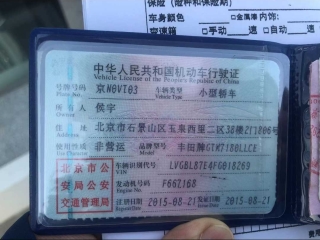 保险(险种和保险期)
车身颜色 □金属漆 内饰:
变速箱 □手动 速 □自动 速
中华人民共和国机动车行驶证
Vehicle License of the People's Republic of China
号牌号码 京N0VI03 车辆类型 小型轿车
Plate No. Vehicle Type
所有人 侯宇
住址 北京市石景山区玉泉西里二区38楼2门806号
使用性质 非营运 品牌型号 丰田牌GTM7180LLCE
北京市公安局公安交通管理局
车辆识别代号 LVGBL87E4FG018269
VIN
发动机号码 F667168
注册日期 2015-08-21 发证日期 2015-08-21